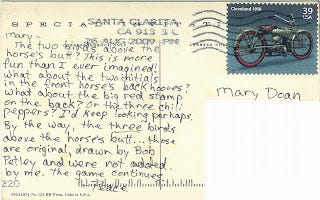 SPECIAL
SANTA CLARITA
CA 913 3 L
16 AUG 2009 PM
Cleveland 1918
39
USA
Mary -
The two birds above the
horse's butt? This is more
fun than I ever imagined!
What about the two initials
in the front horse's back hooves?
What about the big red stamp
on the back? Or the three chili
peppers? I'd keep looking perhaps.
By the way, the three birds
above the horse's butt... those
are original, drawn by Bob
Petley and were not added
by me. The game continues
Peace
220
Mary Doan